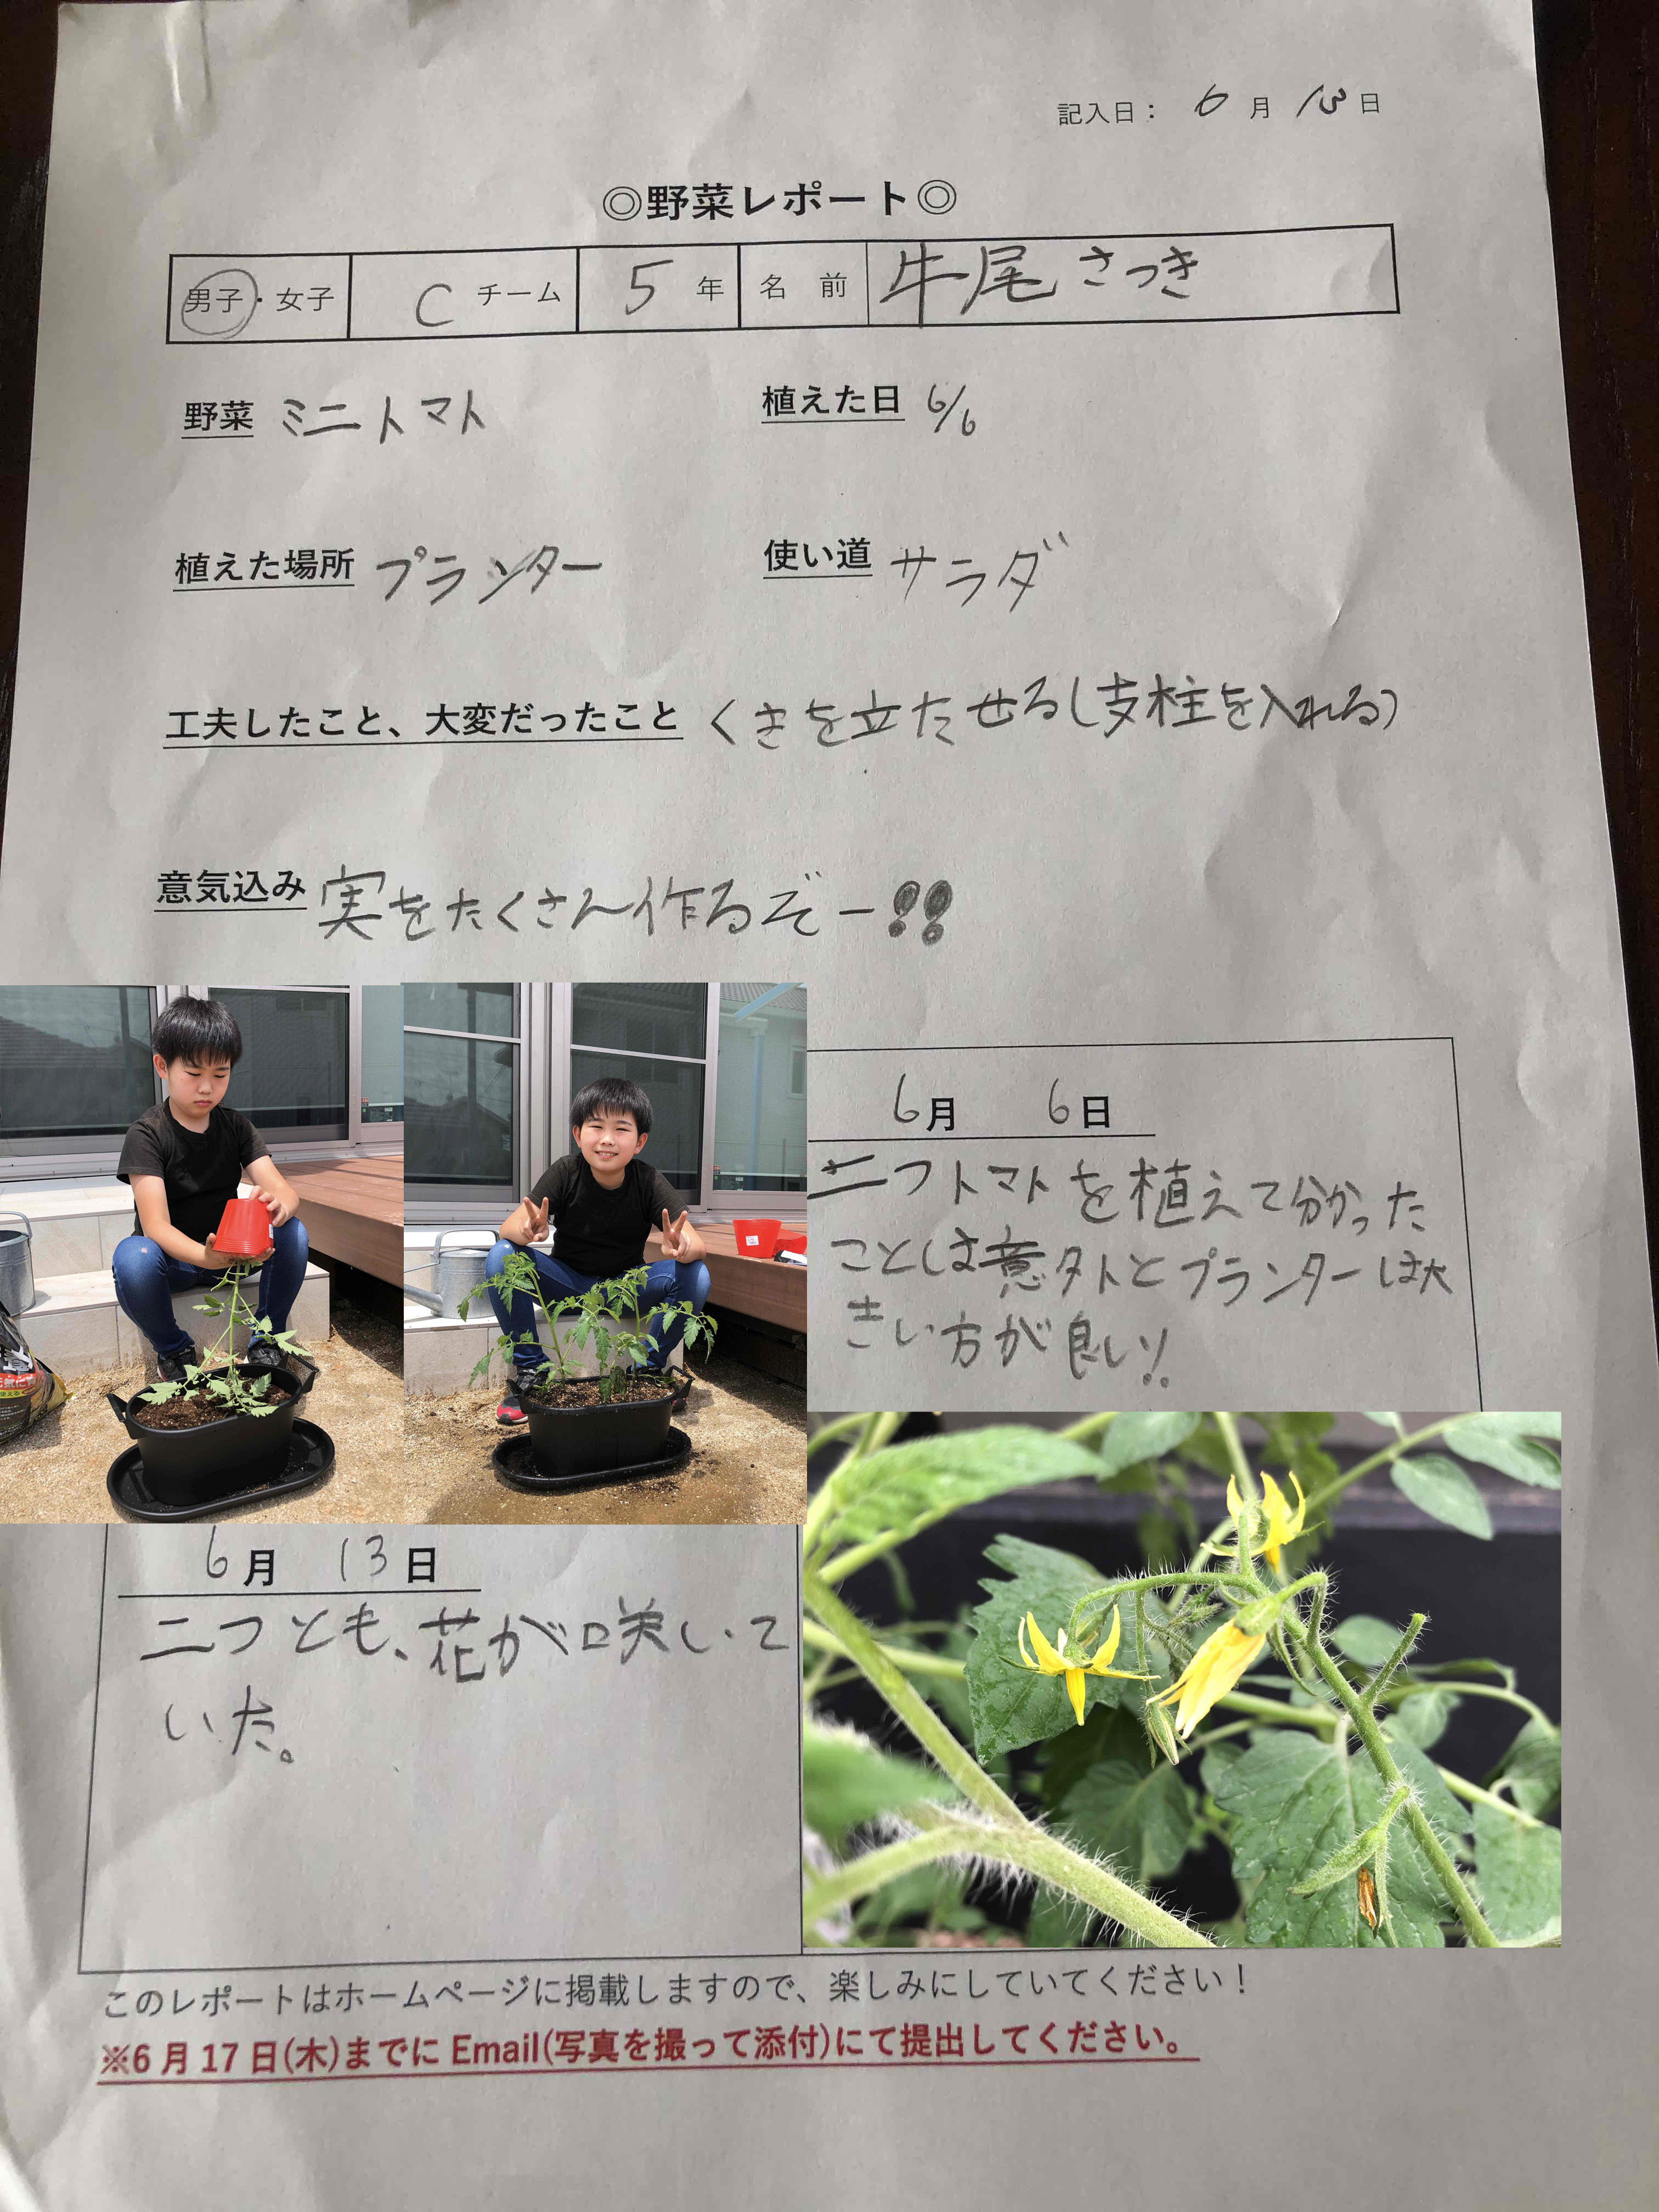 記入日： 6 月 13 日
◎野菜レポート◎
男子・女子 C チーム 5 年 名 前 牛尾 さつき
野菜 ミニトマト 植えた日 6/6
植えた場所 プランター 使い道 サラダ
工夫したこと、大変だったこと くきを立たせる(支柱を入れる)
意気込み 実をたくさん作るぞー!!
6月 6日
トマトを植えて分かった
ことは意外とプランターは大
きい方が良い!!
6月 13日
二つとも、花が咲いて
いた。
このレポートはホームページに掲載しますので、楽しみにしていてください！
※6 月 17 日(木)までに Email(写真を撮って添付)にて提出してください。